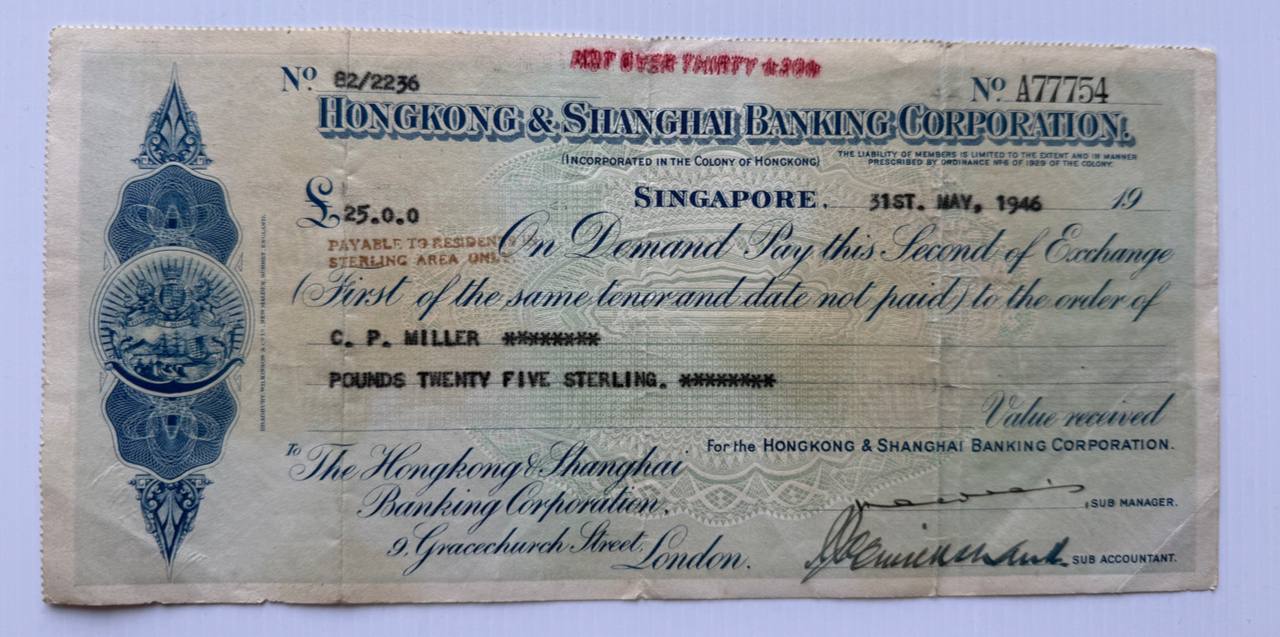 NOT OVER THIRTY
Nº 82/2236
Nº A77754
HONGKONG & SHANGHAI BANKING CORPORATION.
(INCORPORATED IN THE COLONY OF HONGKONG)
THE LIABILITY OF MEMBERS IS LIMITED TO THE EXTENT AND IN MANNER
PRESCRIBED BY ORDINANCE Nº 6 OF 1929 OF THE COLONY.
SINGAPORE. 31ST. MAY, 1946 19
£ 25.0.0
PAYABLE TO RESIDENTS
STERLING AREA ONLY
On Demand Pay this Second of Exchange
(First of the same tenor and date not paid) to the order of
C. P. MILLER ********
POUNDS TWENTY FIVE STERLING. ********
Value received
For the HONGKONG & SHANGHAI BANKING CORPORATION.
To The Hongkong & Shanghai
Banking Corporation,
9, Gracechurch Street, London.
, SUB MANAGER.
SUB ACCOUNTANT.
BRADBURY, WILKINSON & Cº LD. NEW MALDEN, SURREY, ENGLAND.